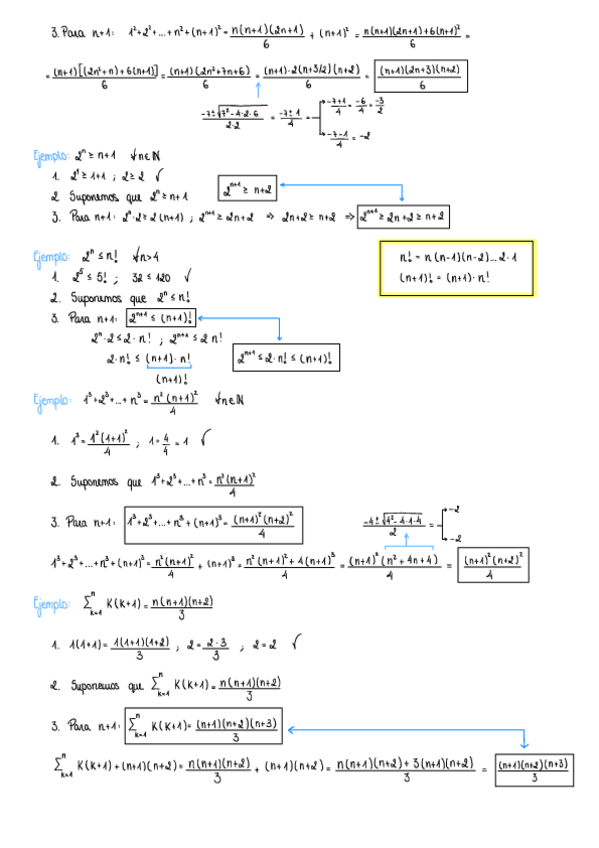 3. Para n+1: 1²+2²+...+n²+(n+1)² = n(n+1)(2n+1)/6 + (n+1)² = n(n+1)(2n+1)+6(n+1)²/6 =
= (n+1)[(2n²+n)+6(n+1)]/6 = (n+1)(2n²+7n+6)/6 = (n+1)·2(n+3/2)(n+2)/6 = (n+1)(2n+3)(n+2)/6
-7±√7²-4·2·6/2·2 = -7±1/4 = -7+1/4 = -6/4 = -3/2
-7-1/4 = -2
Ejemplo: 2ⁿ ≥ n+1 ∀n∈ℕ
1. 2¹ ≥ 1+1 ; 2 ≥ 2 ✓
2. Suponemos que 2ⁿ ≥ n+1
2ⁿ⁺¹ ≥ n+2
3. Para n+1: 2ⁿ·2 ≥ 2(n+1) ; 2ⁿ⁺¹ ≥ 2n+2 ⇒ 2n+2 ≥ n+2 ⇒ 2ⁿ⁺¹ ≥ 2n+2 ≥ n+2
Ejemplo: 2ⁿ ≤ n! ∀n>4
n! = n(n-1)(n-2)...2·1
(n+1)! = (n+1)·n!
1. 2⁵ ≤ 5! ; 32 ≤ 120 ✓
2. Suponemos que 2ⁿ ≤ n!
3. Para n+1: 2ⁿ⁺¹ ≤ (n+1)!
2ⁿ·2 ≤ 2·n! ; 2ⁿ⁺¹ ≤ 2n!
2·n! ≤ (n+1)·n!
2ⁿ⁺¹ ≤ 2·n! ≤ (n+1)!
(n+1)!
Ejemplo: 1³+2³+...+n³ = n²(n+1)²/4 ∀n∈ℕ
1. 1³ = 1²(1+1)²/4 ; 1 = 4/4 = 1 ✓
2. Suponemos que 1³+2³+...+n³ = n²(n+1)²/4
3. Para n+1: 1³+2³+...+n³+(n+1)³ = (n+1)²(n+2)²/4
-4±√4²-4·1·4/2 = -2
-2
1³+2³+...+n³+(n+1)³ = n²(n+1)²/4 + (n+1)³ = n²(n+1)²+4(n+1)³/4 = (n+1)²(n²+4n+4)/4 = (n+1)²(n+2)²/4
Ejemplo: ∑ⁿₖ₌₁ K(K+1) = n(n+1)(n+2)/3
1. 1(1+1) = 1(1+1)(1+2)/3 ; 2 = 2·3/3 ; 2=2 ✓
2. Suponemos que ∑ⁿₖ₌₁ K(K+1) = n(n+1)(n+2)/3
3. Para n+1: ∑ⁿₖ₌₁ K(K+1) = (n+1)(n+2)(n+3)/3
∑ⁿₖ₌₁ K(K+1)+(n+1)(n+2) = n(n+1)(n+2)/3 + (n+1)(n+2) = n(n+1)(n+2)+3(n+1)(n+2)/3 = (n+1)(n+2)(n+3)/3